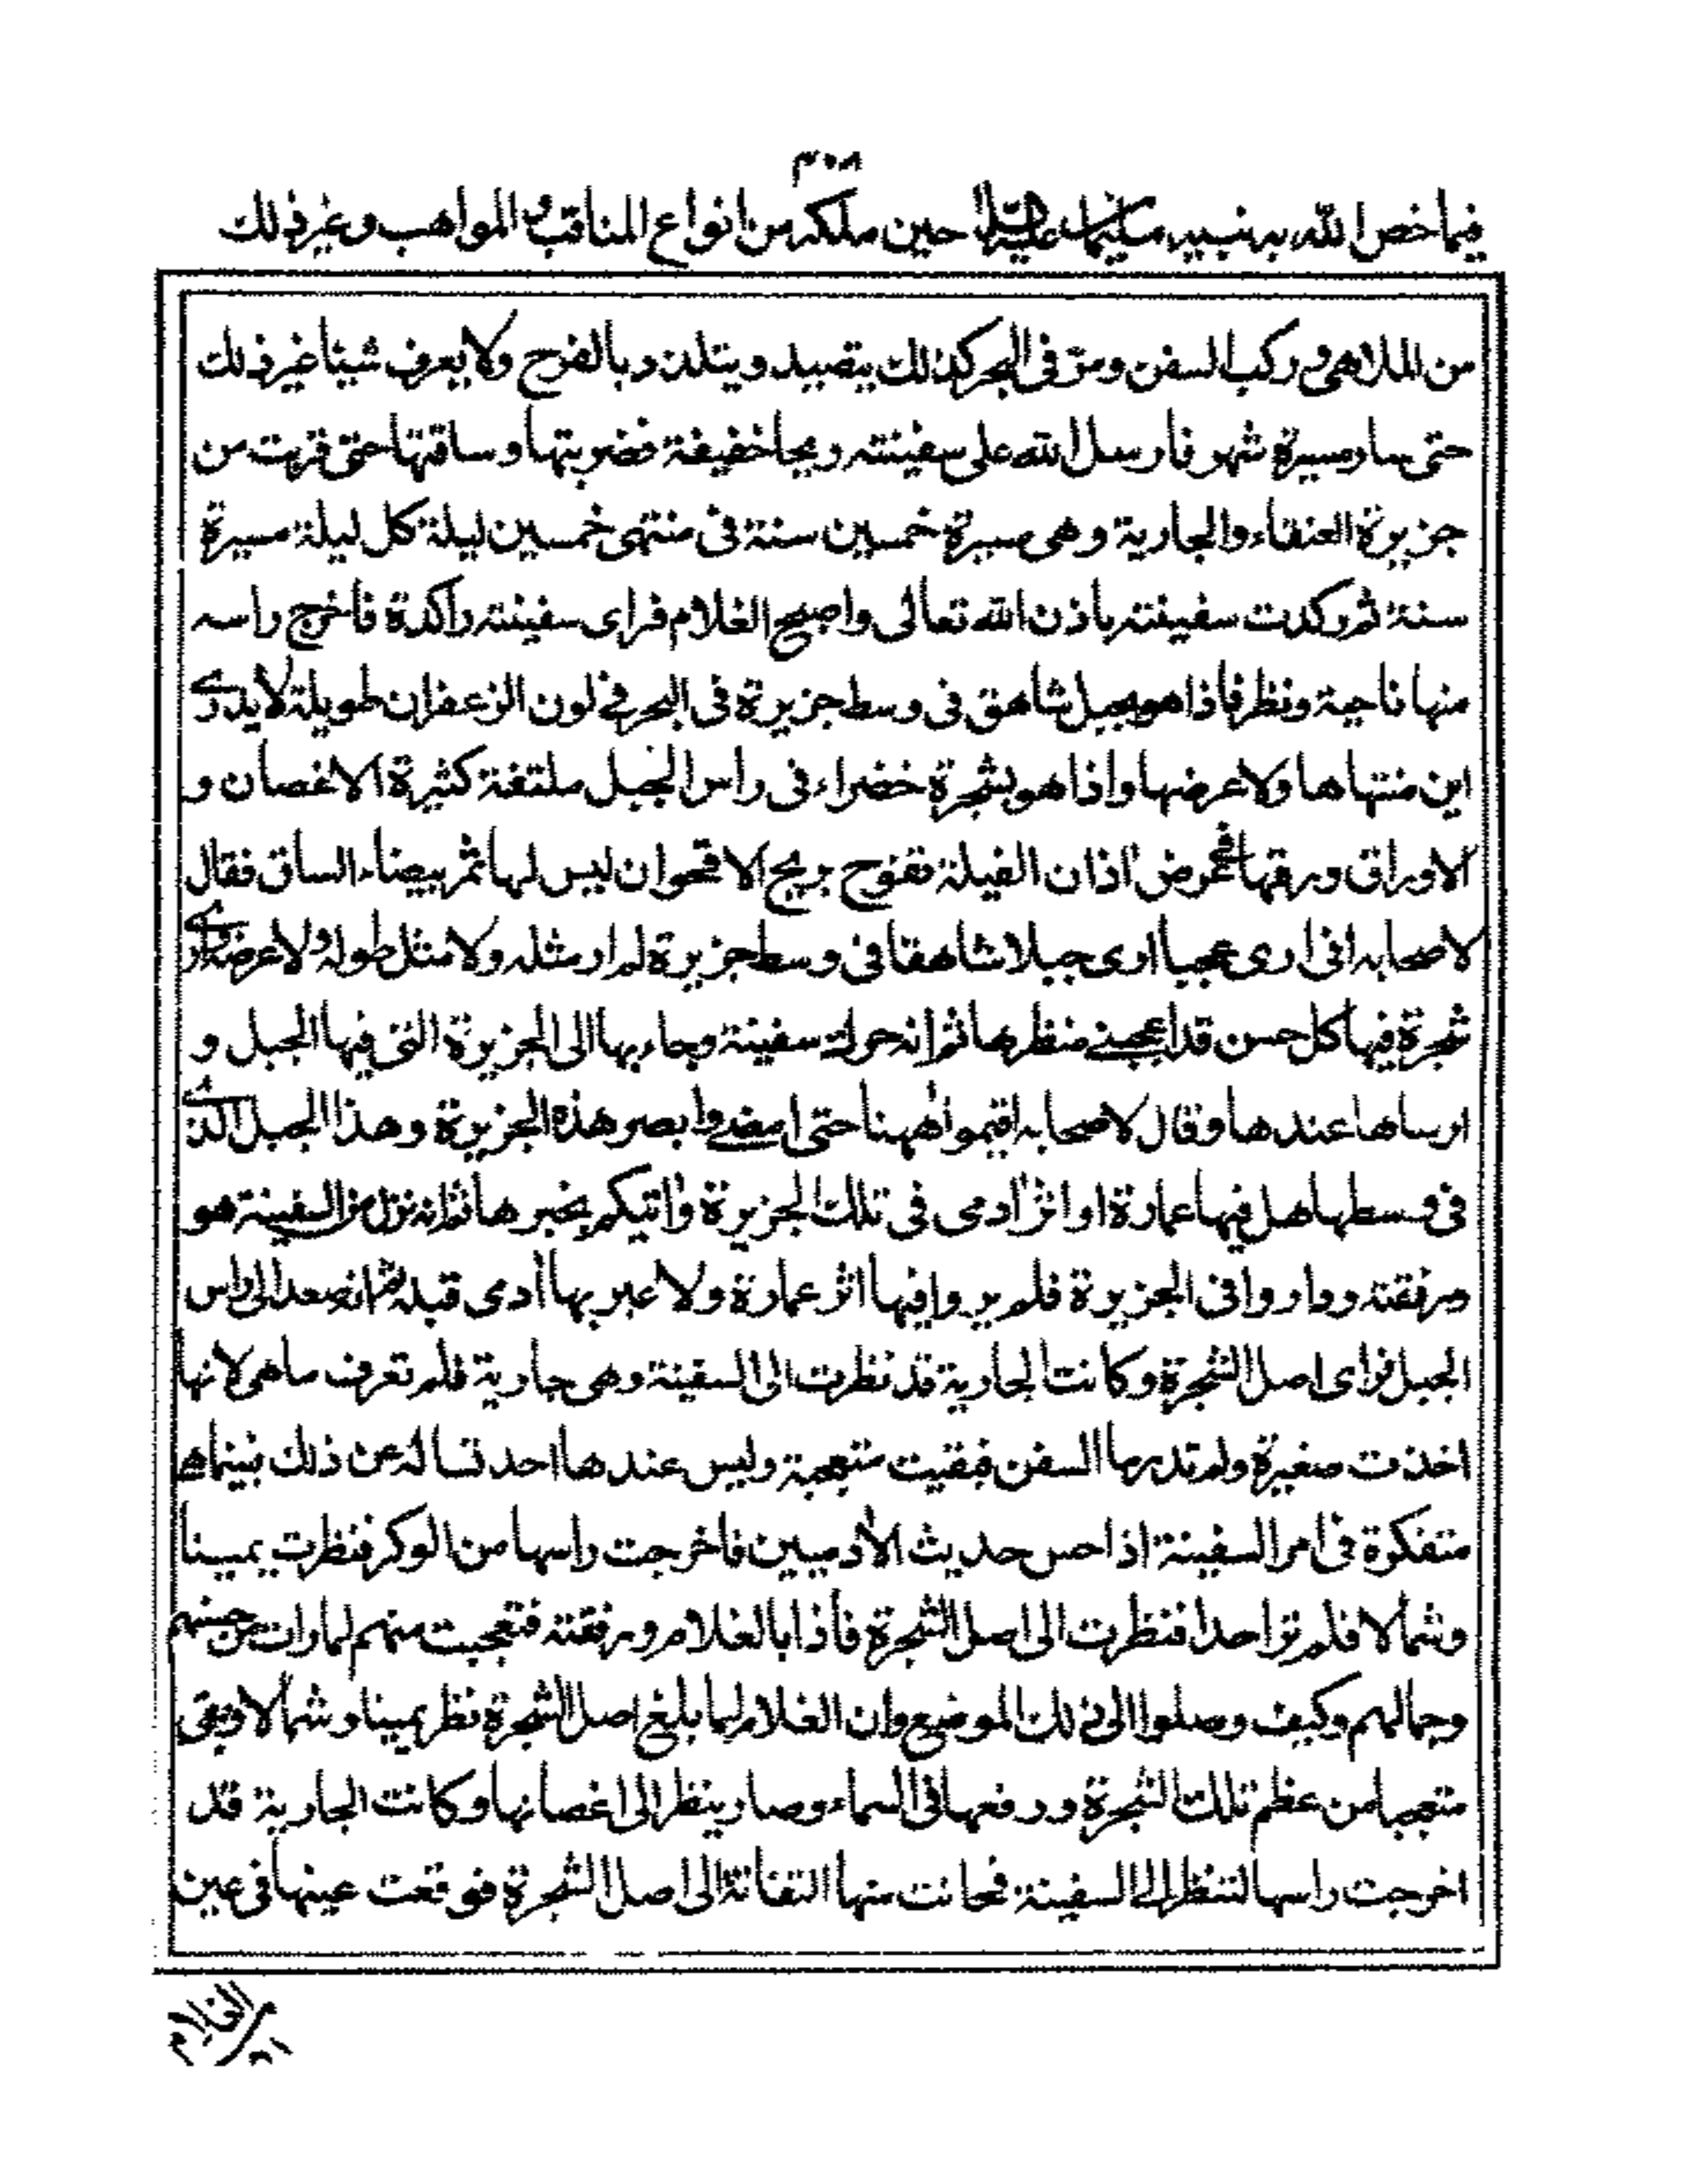 ٣٠٨
فيما خص الله به نبيه سليمان عليه السلام حين ملكه من انواع المناقب والمواهب وغير ذلك
من الملاهى وركب السفن ومر فى البحر كذلك يتصيد ويتلذذ بالفرح ولا يعرف شيئا غير ذلك
حتى سار مسيرة شهر فارسل الله على سفينته ريحا خفيفة فضربتها وساقتها حتى قربت من
جزيرة العنقاء والجارية وهى مسيرة خمسين سنة فى منتهى خمسين ليلة كل ليلة مسيرة
سنة ثم ركدت سفينته باذن الله تعالى واصبح الغلام فراى سفينته راكدة فاخرج راسه
منها ناحية ونظر فاذا هو بجبل شاهق فى وسط جزيرة فى البحر فے لون الزعفران طويلة لا يدرے
اين منتهاها ولا عرضها واذا هو بشجرة خضراء فى راس الجبل ملتفة كثيرة الاغصان و
الاوراق ورقها عرض اذان الفيلة تفوح بريح الاقحوان ليس لها ثمر بيضاء الساق فقال
لاصحابه انى ارى عجبا ارى جبلا شاهقا فى وسط جزيرة لم ار مثله ولا مثل طوله ولا عرضه وارے
شجرة فيها كل حسن قد اعجبنے منظرها ثم انه حرك سفينة وجاء بها الى الجزيرة التى فيها الجبل و
ارساها عندها وقال لاصحابه اقيموا ههنا حتى امضے وابصر هذه الجزيرة وهذا الجبل الذے
فى وسطها هل فيها عمارة او اثر ادمى فى تلك الجزيرة واتيكم بخبرها ثم انه نزل من السفينة هو
ورفقته وداروا فى الجزيرة فلم يروا فيها اثر عمارة ولا عبر بها ادمى قبله ثم انه صعد الى راس
الجبل فراى اصل الشجرة وكانت الجارية قد نظرت الى السفينة وهى جارية فلم تعرف ما هى لانها
اخذت صغيرة ولم تدر ما السفن فبقيت متعجبة وليس عندها احد تساله عن ذلك فبينما هى
متفكرة فى امر السفينة اذا حس حديث الادميين فاخرجت راسها من الوكر فنظرت يمينا
وشمالا فلم تر احدا فنظرت الى اصل الشجرة فاذا بالغلام ورفقته فتعجبت منهم لما رات من حسنهم
وجمالهم وكيف وصلوا الى ذلك الموضع وان الغلام لما بلغ اصل الشجرة نظر يمينا وشمالا وبقى
متعجبا من عظم تلك الشجرة ورفعها فى السماء وصار ينظر الى اغصانها وكانت الجارية قد
اخرجت راسها لتنظر الے السفينة فحانت منها التفاتة الى اصل الشجرة فوقعت عينها فى عين
الغلام